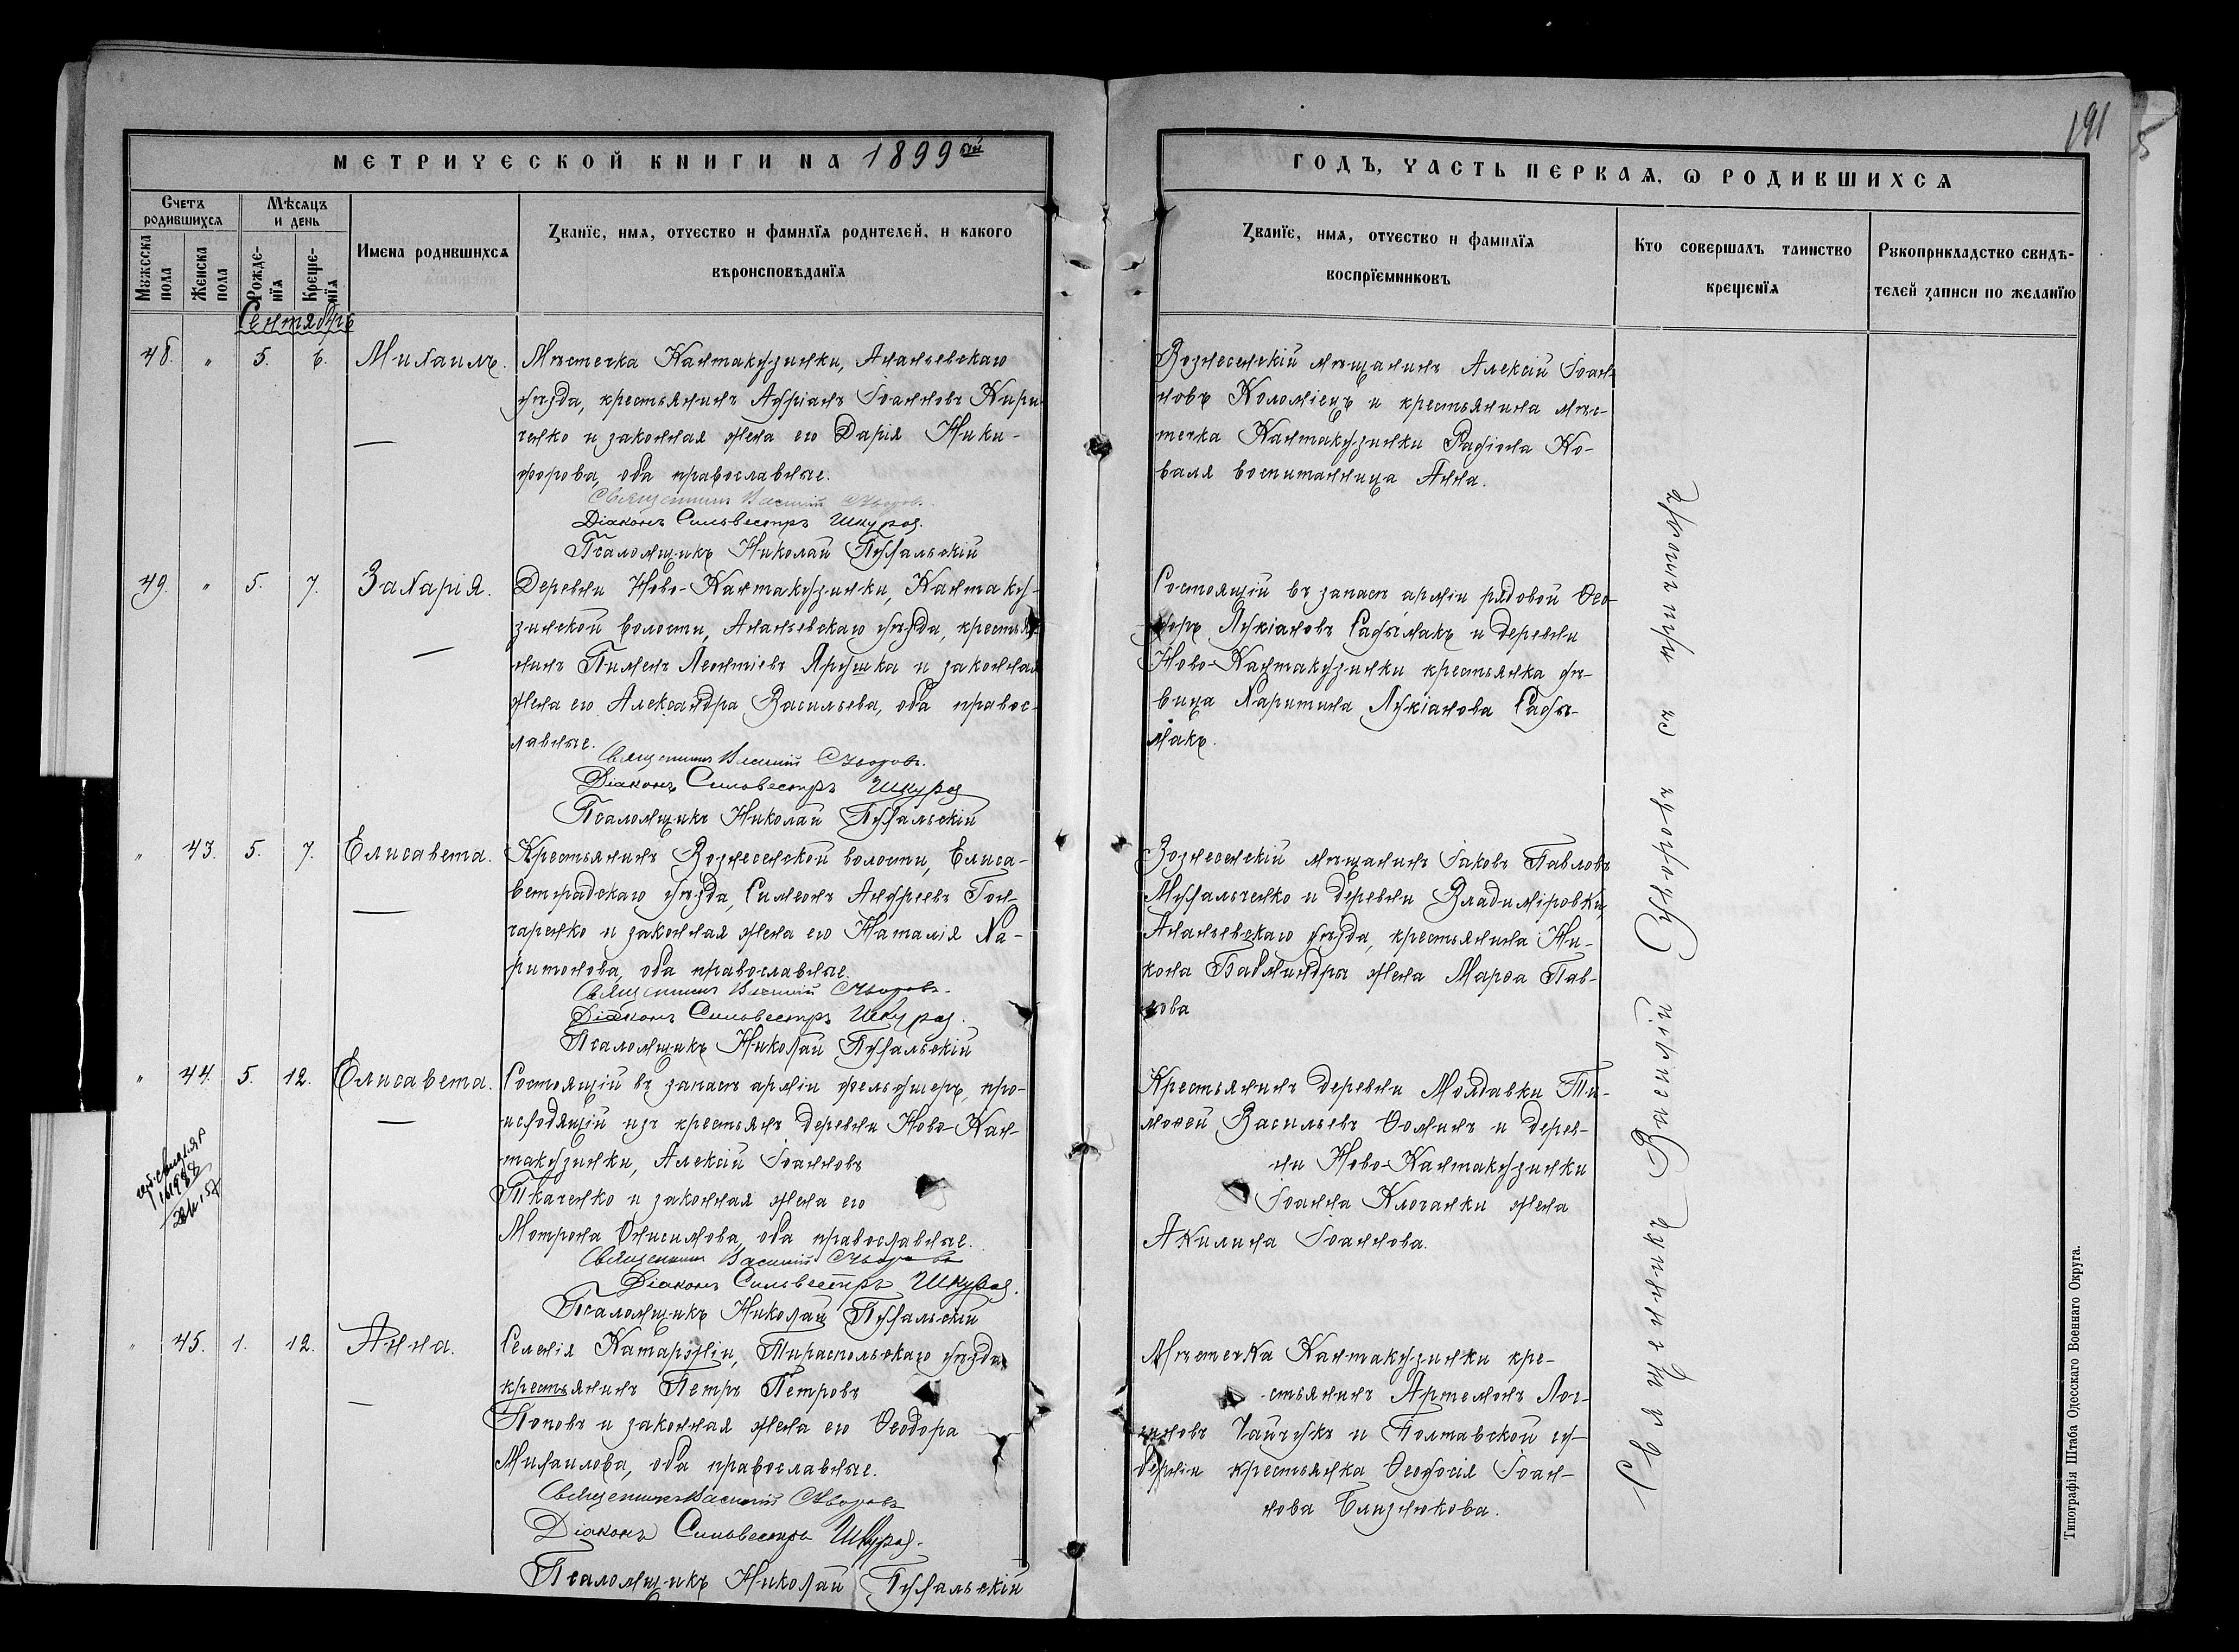 191
5
МЕТРИЧЕСКОЙ КНИГИ НА 1899 ый
ГОДЪ, ЧАСТЬ ПЕРВАЯ, Ѡ РОДИВШИХСЯ
Счетъ родившихся
Мѣсяцъ и день
Мужеска пола
Женска пола
Рожденїя
Крещенїя
Имена родившихся
Званїе, имя, отчество и фамилїя родителей, и какого
вѣроисповѣданїя
Званїе, имя, отчество и фамилїя
воспрїемниковъ
Кто совершалъ таинство
крещенїя
Рукоприкладство свидѣ-
телей записи по желанїю
Сентябрь
48. " 5. 6. Михаилъ.
Мѣстечка Кантакузинки, Ананьевскаго
уѣзда, крестьянинъ Адріанъ Іоанновъ Кири-
ченко и законная жена его Дарія Ники-
форова, оба православные.
Священникъ Василій
Діаконъ Сильвестръ Шкурод.
Псаломщикъ Николай Пухальскій
Вознесенскій мѣщанинъ Алексій Іоан-
новъ Коломіецъ и крестьянина мѣс-
течка Кантакузинки Радіона Ко-
валя воспитанница Анна.
49. " 5. 7. Захарія.
Деревни Ново-Кантакузинки, Кантаку-
зинской волости, Ананьевскаго уѣзда, крестья-
нинъ Пименъ Леонтіевъ Ярушка и законная
жена его Александра Васильева, оба правос-
лавные.
Священникъ Василій
Діаконъ Сильвестръ Шкурод
Псаломщикъ Николай Пухальскій
Состоящій въ запасѣ арміи рядовой Ѳео-
доръ Лукіановъ Садымакъ и деревни
Ново-Кантакузинки крестьянка дѣ-
вица Харитина Лукіанова Сады-
макъ.
" 43. 5. 7. Елисавета.
Крестьянинъ Вознесенской волости, Елиса-
ветградскаго уѣзда, Симеонъ Андреевъ Гон-
чаренко и законная жена его Наталія Ха-
ритонова, оба православные.
Священникъ Василій
Діаконъ Сильвестръ Шкурод.
Псаломщикъ Николай Пухальскій
Вознесенскій мѣщанинъ Іаковъ Павловъ
Михальченко и деревни Владиміровки,
Ананьевскаго уѣзда, крестьянина Ни-
кона жена Марѳа Пав-
лова
" 44. 5. 12. Елисавета.
Состоящій въ запасѣ арміи фельдшеръ, про-
исходящій изъ крестьянъ деревни Ново-Кан-
такузинки, Алексій Іоанновъ
Ткаченко и законная жена его
Мотрона Онисимова, оба православные.
Священникъ Василій
Діаконъ Сильвестръ Шкурод.
Псаломщикъ Николай Пухальскій
Крестьянинъ деревни Молдавки Ти-
моѳей Васильевъ Ѳоминъ и дерев-
ни Ново-Кантакузинки
Іоанна Клочанки жена
Акилина Іоаннова.
" 45. 1. 12. Анна.
Селенія Катаржіи, Тираспольскаго уѣзда,
крестьянинъ Петръ Петровъ
Поповъ и законная жена его Ѳеодора
Михаилова, оба православные.
Священникъ Василій
Діаконъ Сильвестръ Шкурод.
Псаломщикъ Николай Пухальскій
Мѣстечка Кантакузинки кре-
стьянинъ Артемонъ Лог-
гиновъ Чайчукъ и Полтавской гу-
берніи крестьянка Ѳеодосія Іоан-
нова Близнюкова.
Священникъ Василій съ причтомъ
Типографія Штаба Одесскаго Военнаго Округа.